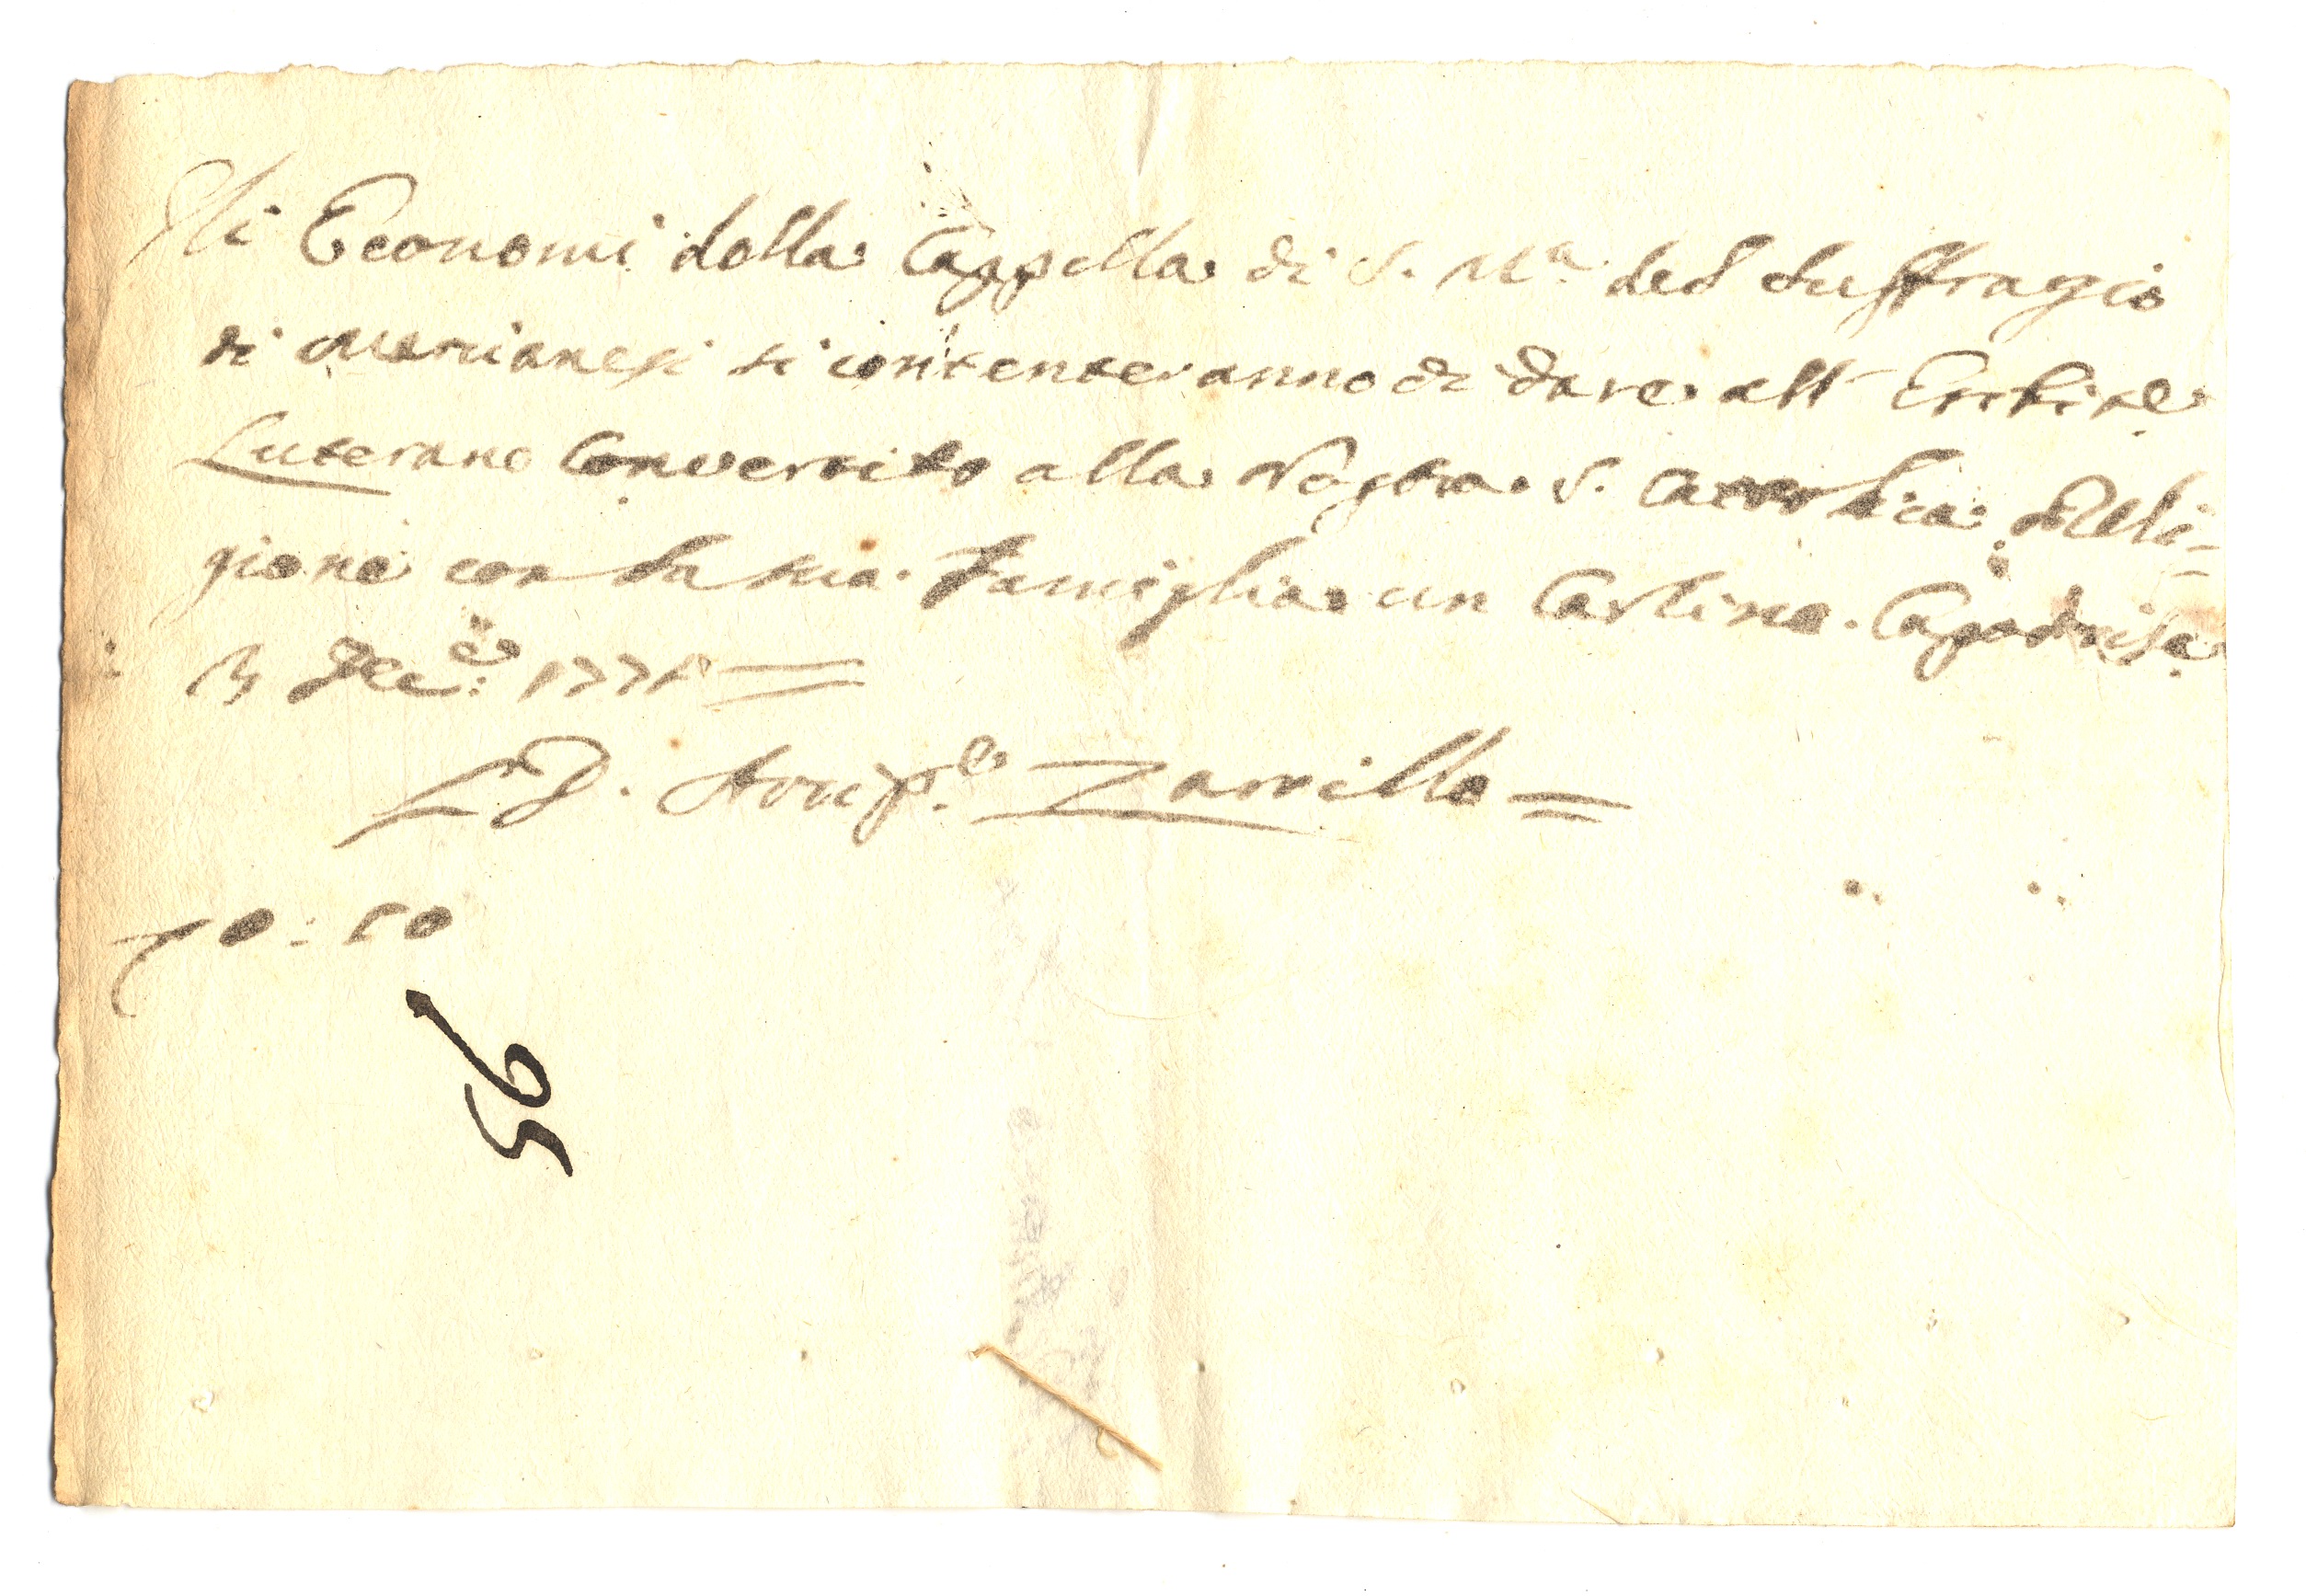 Gli Economi della Cappella di S. M.ª del Suffragio
di Marcianesi si contenteranno di dare all'
Luterano Convertito alla Nostra S. Cattolica Reli-
gione con la sua Famiglia un Carlino. Capodrise
Dec.e 1771
D. Arcip.e Zarrillo
0:10
56